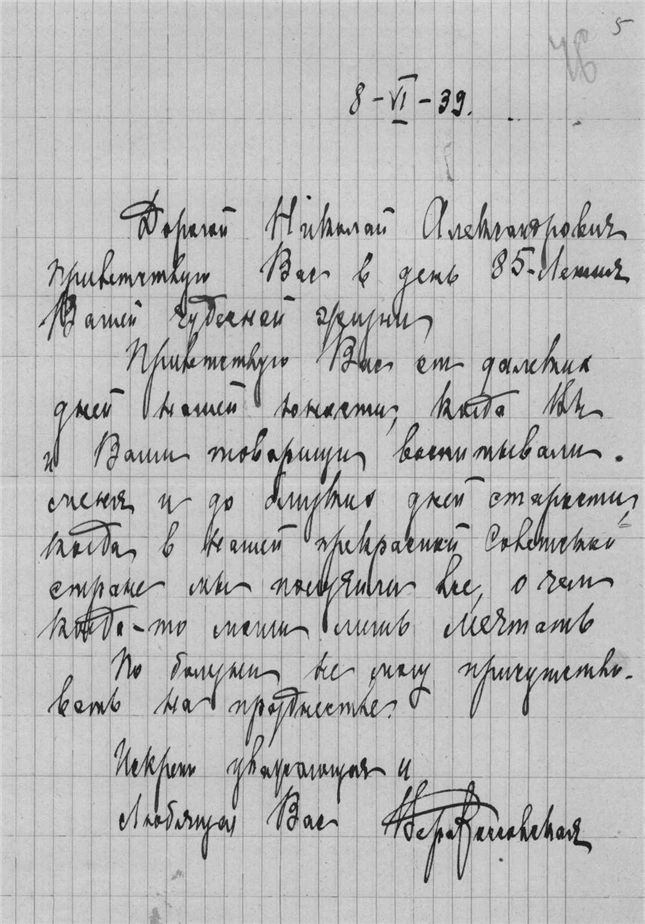 5
8-VI-39.
Дорогой Николай Александрович
Приветствую Вас в день 85-Летия
Вашей чудесной жизни
Приветствую Вас от далеких
дней нашей юности, когда Вы
и Ваши товарищи воспитывали
меня и до близких дней старости,
когда в нашей прекрасной Советской
стране мы получили все, о чем
когда-то могли лишь мечтать
По болезни не могу присутство-
вать на празднестве.
Искренно уважающая и
Любящая Вас Вера